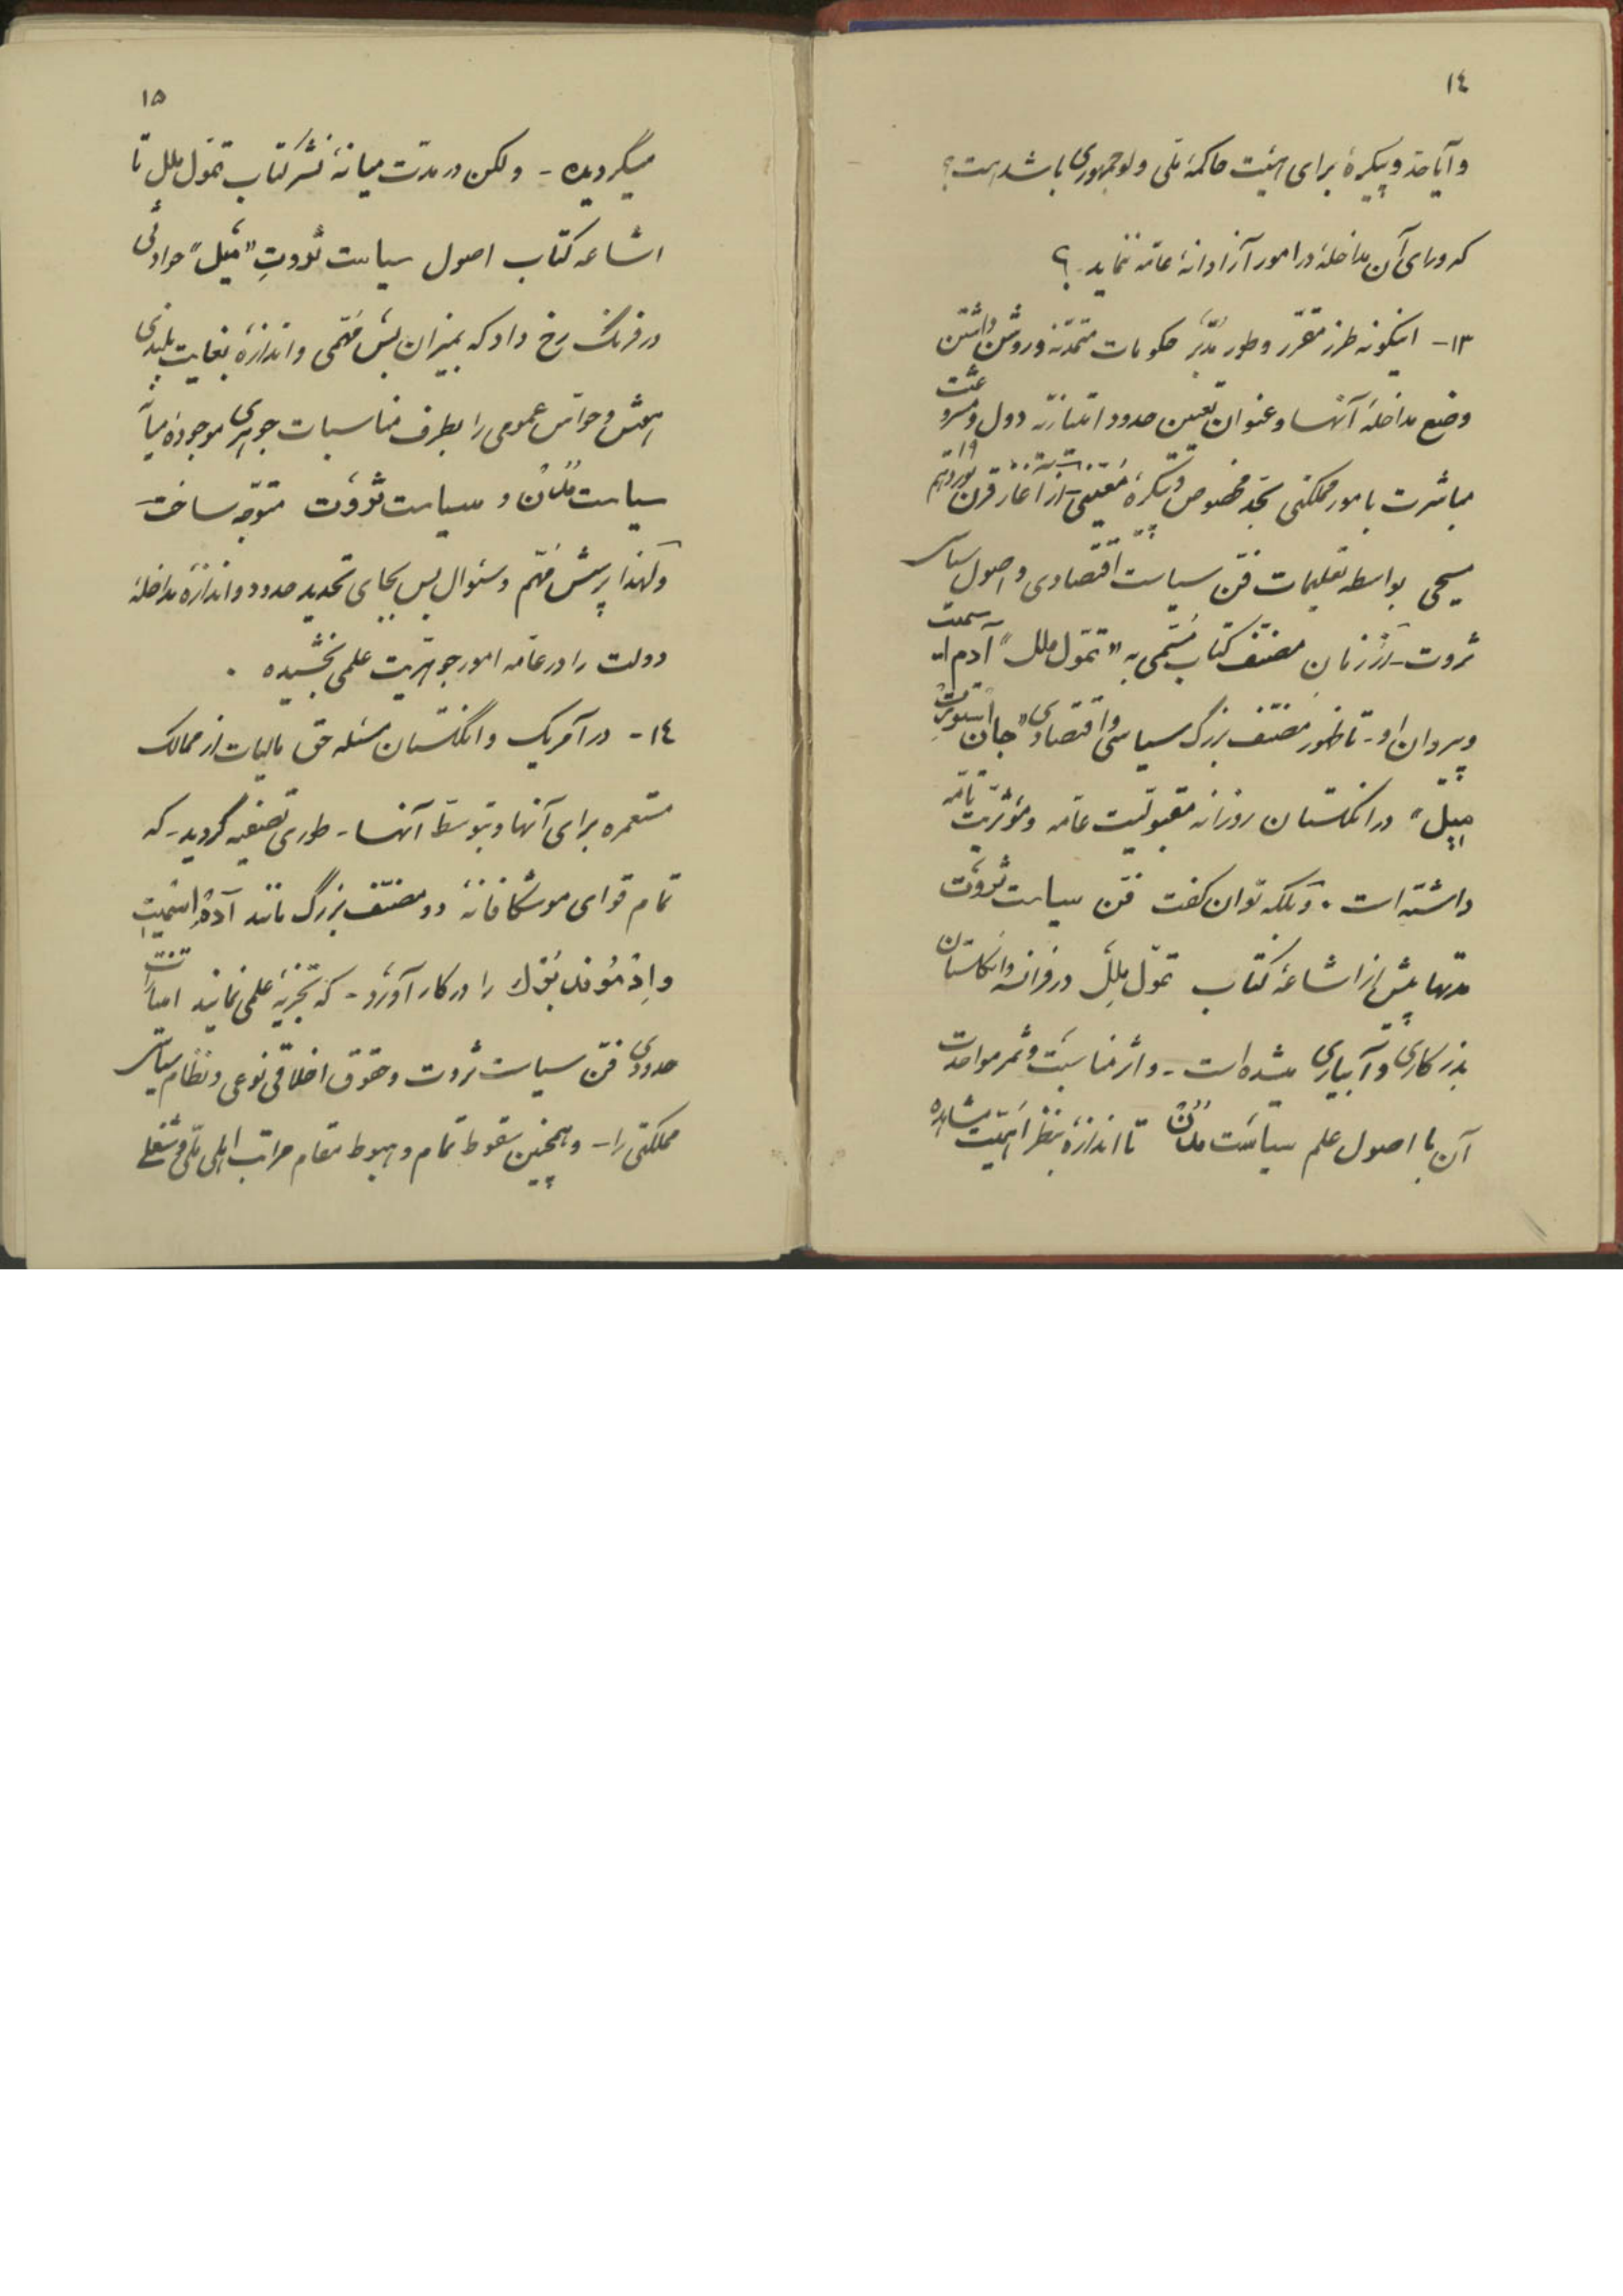 ١٤
و آیا حدّ و پیکرهٔ برای هیئت حاکمهٔ ملّی ولو جمهوری باشد هست؟
که ورای آن مداخله در امور آزادانهٔ عامّه ننماید ؟
١٣- اینگونه طرز مقرّر و طور مدبّر حکومات متمدّنه و روشن داشتن
وضع مداخلهٔ آنها و عنوان تعیین حدود امتیازیّه دول و مشروعیّت
مباشرت بامور مملکتی بحدّ مخصوص و پیکرهٔ معیّنی - از آغاز قرن نوزدهم ١٩
مسیحی بواسطه تعلیمات فنّ سیاست اقتصادی و اصول سیاسی
ثروت - از زمان مصنّف کتاب مسمّی به "تموّل ملل" آدم اسمیت
و پیروان او - تا ظهور مصنّف بزرگ سیاسی و اقتصادی "جان استورت
میل" در انگلستان روزانه مقبولیّت عامّه و مؤثریّت تامّه
داشته است . و بلکه توان گفت فنّ سیاست ثروت
مدتها پیش از اشاعهٔ کتاب تموّل ملل در فرانسه و انگلستان
بذرکاری و آبیاری میشده است - و اثر مناسبت و ثمر مواحدت
آن با اصول علم سیاست مُدُن تا اندازهٔ بنظر اهمیّت مشاهده
١٥
میگردیده - ولکن در مدّت میانهٔ نشر کتاب تموّل ملل تا
اشاعه کتاب اصول سیاست ثروتِ "میل" حوادثی
در فرنگ رخ داد که بمیزان بس مُهمّی و اندازهٔ بغایت بلندی
هُش و حواس عمومی را بطرف مناسبات جوهری موجودهٔ میان
سیاست مُدُن و سیاست ثروت متوجّه ساخت
ولهذا پرسش مهمّ و سئوال بس بجای تحدید حدود و اندازه مداخلهٔ
دولت را در عامّه امور جوهریّت علمی بخشیده .
١٤- در آمریک و انگلستان مسئله حق مالیات از ممالک
مستعمره برای آنها و بتوسّط آنها - طوری تصفیه گردید - که
تمام قوای موشکافانهٔ دو مصنّف بزرگ مانند آدم اسمیت
و اِدمُوند بُورک را در کار آورد - که تجزیهٔ علمی نمایند امتیازات
حدودی فنّ سیاست ثروت و حقوق اخلاقی نوعی و نظام سیاسی
مملکتی را - و همچنین سقوط تمام و هبوط مقام مراتب اهلی ملّی و شغلی